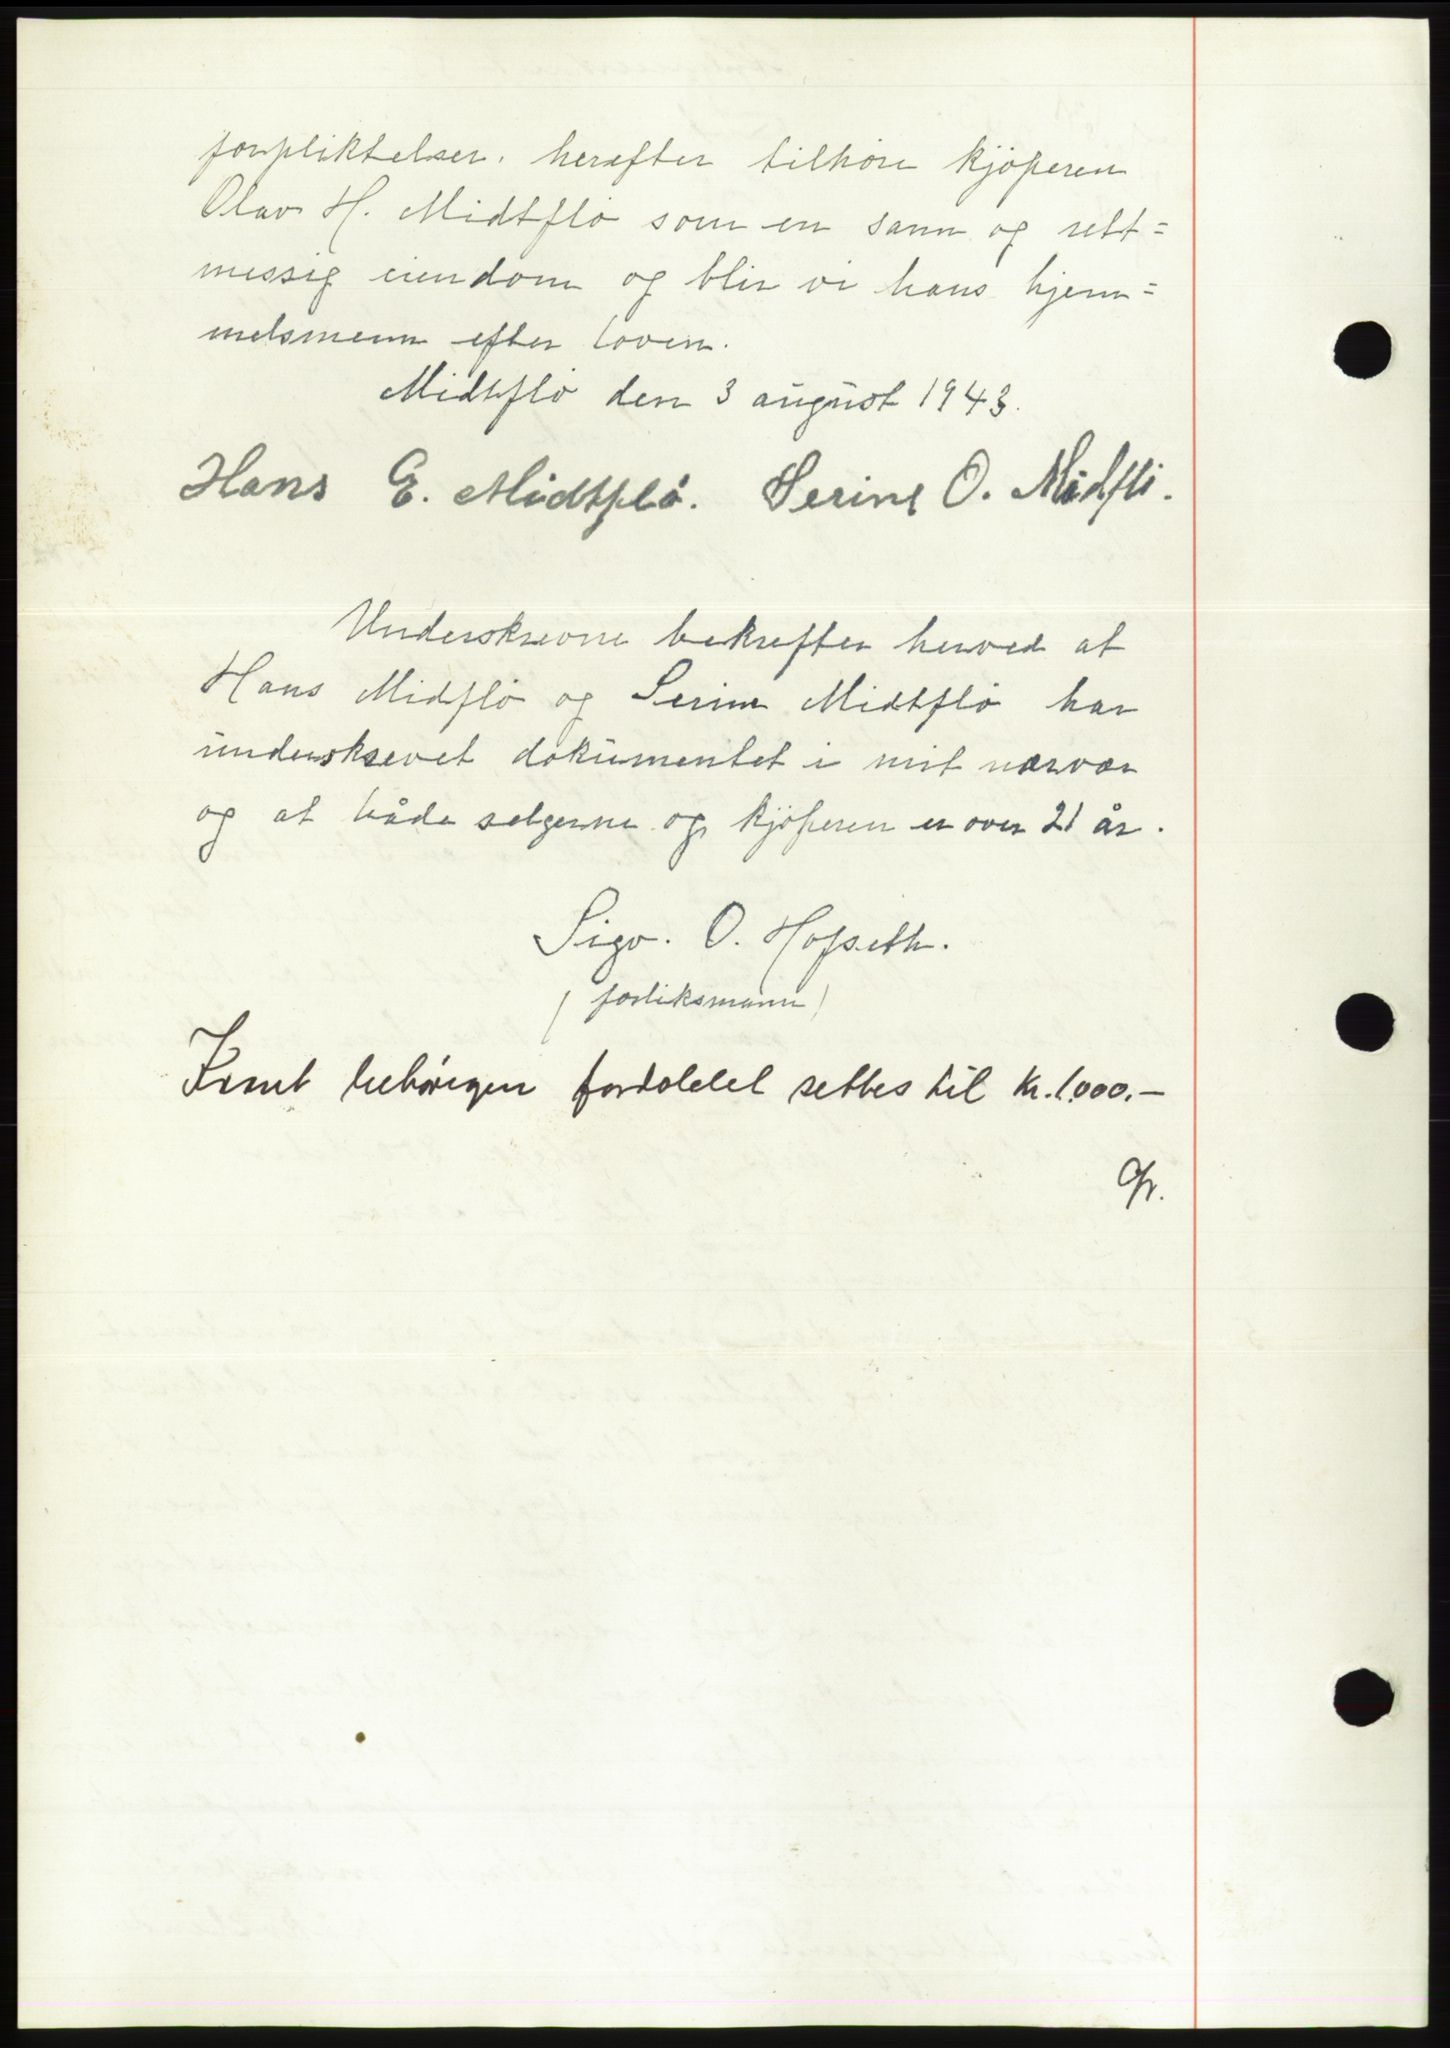 forpliktelser, herefter tilhöre kjöperen
Olav H. Midtflö som en sann og rett=
messig eiendom og blir vi hans hjem=
melsmenn efter loven.
Midtflö den 3 august 1943.
Hans E. Midtflö. Serine O. Midflö.
Underskrevne bekrefter herved at
Hans Midflö og Serine Midtflö har
underskrevet dokumentet i mit nærvær
og at både selgerne og kjöperen er over 21 år.
Sigv. O. Hofseth.
(forliksmann)
Kravet behørigen fordoblet settes til kr. 1.000.-